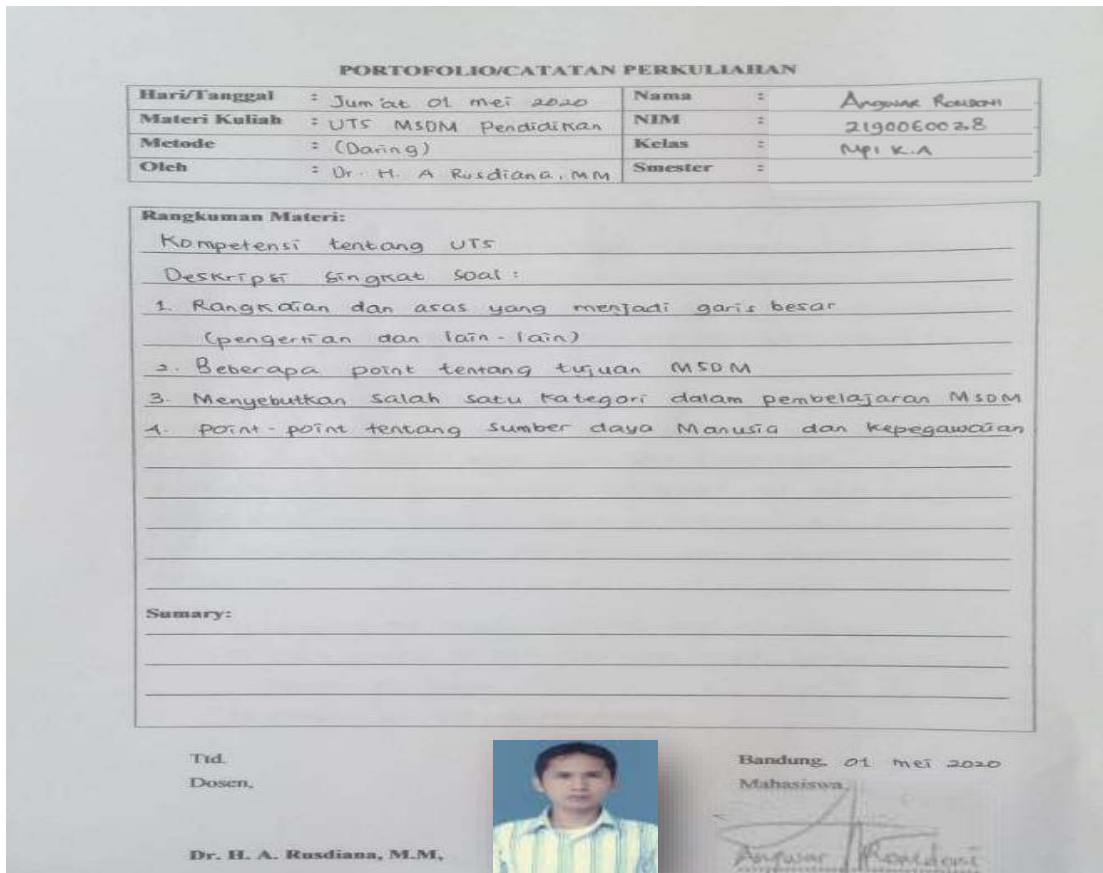 PORTOFOLIO/CATATAN PERKULIAHAN
Hari/Tanggal : Jum'at 01 mei 2020 Nama : Angwar Ronidoni
Materi Kuliah : UTS MSDM Pendidikan NIM : 2190060028
Metode : (Daring) Kelas : MPI K.A
Oleh : Dr. H. A Rusdiana, MM Smester :
Rangkuman Materi:
Kompetensi tentang UTS
Deskripsi singkat soal :
1. Rangkaian dan asas yang menjadi garis besar
(pengertian dan lain-lain)
2. Beberapa point tentang tujuan MSDM
3. Menyebutkan salah satu kategori dalam pembelajaran MSDM
4. Point-point tentang Sumber daya Manusia dan kepegawaian
Sumary:
Ttd. Bandung, 01 mei 2020
Dosen, Mahasiswa,
Dr. H. A. Rusdiana, M.M, Angwar